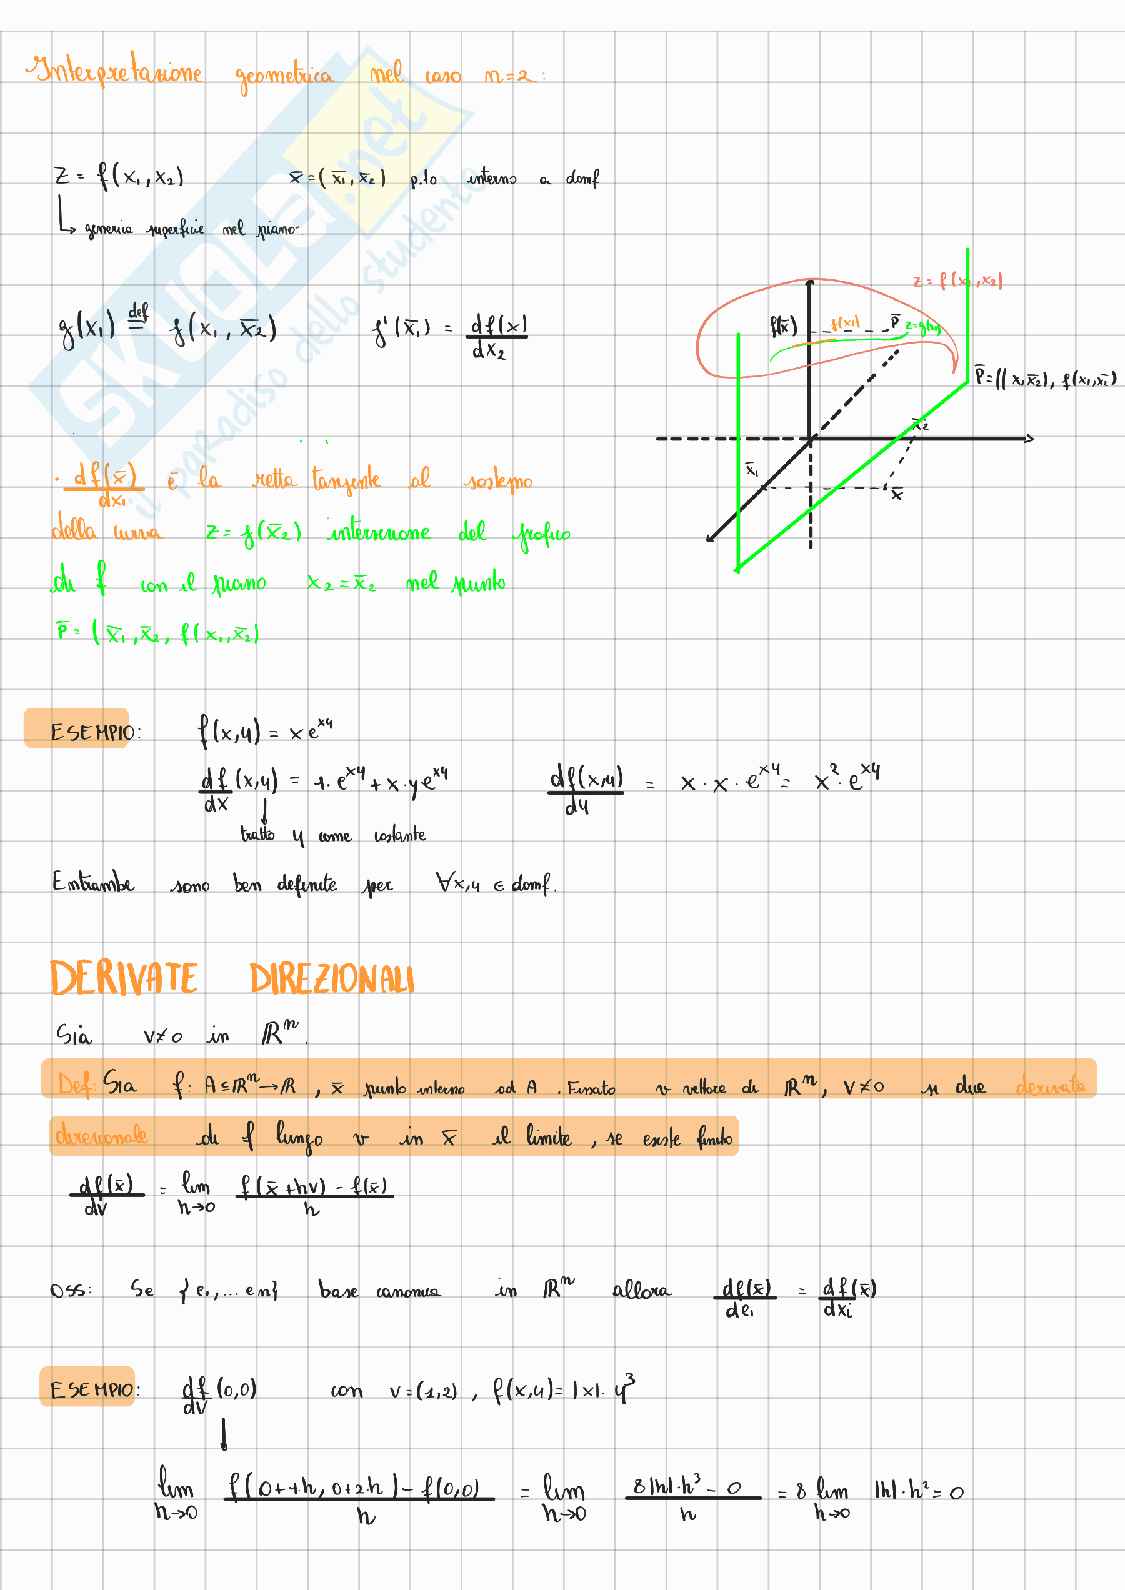 Interpretazione geometrica nel caso n=2:
z = f(x₁, x₂) x̄ = (x̄₁, x̄₂) p.to interno a domf
↳ generica superficie nel piano.
g(x₁) def= f(x₁, x̄₂) g'(x̄₁) = df(x)/dx₂
z = f(x₁, x₂)
f(x̄) f(x₁) P̄ z=g(x₁)
P̄=((x₁x̄₂), f(x₁,x̄₂)
x̄₂
x̄₁
x̄
· df(x̄)/dx₁ è la retta tangente al sostegno
della curva z = g(x̄₂) intersezione del grafico
di f con il piano x₂ = x̄₂ nel punto
P̄ = (x̄₁, x̄₂, f(x₁, x̄₂)
ESEMPIO: f(x,y) = x e^xy
df/dx (x,y) = 1· e^xy + x · y e^xy df(x,y)/dy = x · x · e^xy = x² · e^xy
tratto y come costante
Entrambe sono ben definite per ∀x,y ∈ domf.
DERIVATE DIREZIONALI
Sia v≠0 in ℝⁿ.
Def: Sia f: A⊆ℝⁿ→ℝ, x̄ punto interno ad A. Fissato v vettore di ℝⁿ, v≠0 si dice derivata
direzionale di f lungo v in x̄ il limite, se esiste finito
df(x̄)/dv = lim h→0 f(x̄+hv) - f(x̄)/h
OSS: Se {e₁,... en} base canonica in ℝⁿ allora df(x̄)/deᵢ = df(x̄)/dxi
ESEMPIO: df/dv (0,0) con v=(1,2), f(x,y)=|x|· y³
lim h→0 f(0+1h, 0+2h) - f(0,0)/h = lim h→0 8|h|·h³ - 0/h = 8 lim h→0 |h|·h² = 0
SKUOLA.net
il paradiso dello studente